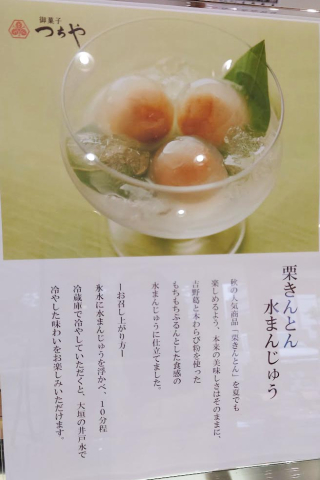 御菓子
つちや
栗きんとん
水まんじゅう
秋の人気商品「栗きんとん」を夏でも
楽しめるよう、本来の美味しさはそのままに、
吉野葛と本わらび粉を使った
もちもちぷるんとした食感の
水まんじゅうに仕立てました。
ーお召し上がり方ー
氷水に水まんじゅうを浮かべ、１０分程
冷蔵庫で冷やしていただくと、大垣の井戸水で
冷やした味わいをお楽しみいただけます。